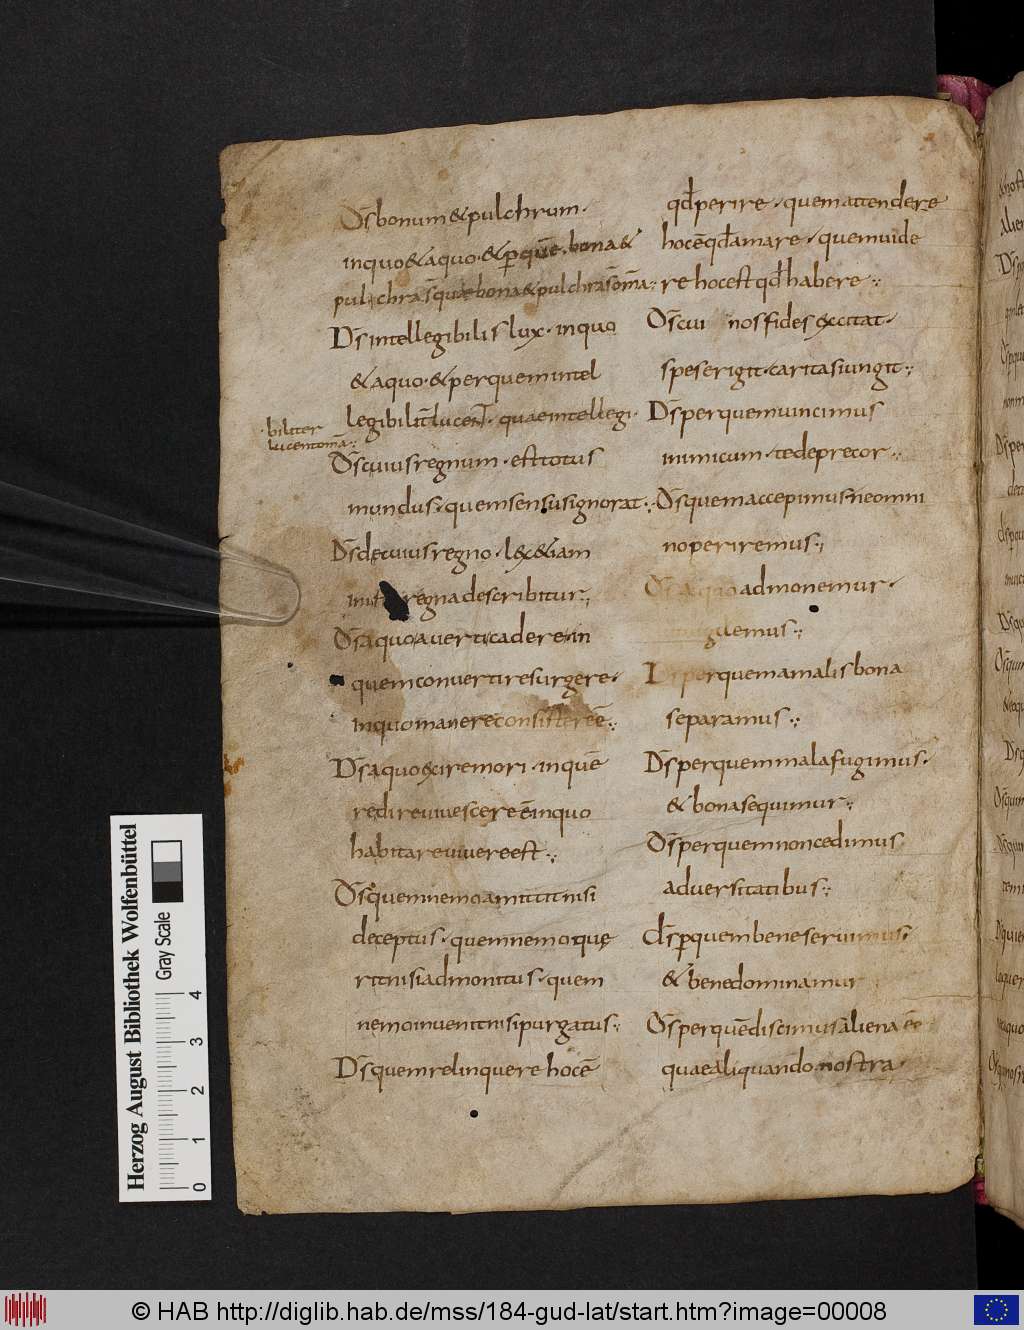 Ds̄ bonum & pulchrum·
in quo & a quo· & p̱ quē· bona &
pulchra s̄ quae bona & pulchra s̄ om̄a:·
Ds̄ intellegibilis lux· in quo
& a quo· & per quem intel
legibilit̄ lucent· quae intellegi·
·biliter
lucent om̄a:·
Ds̄ cuius regnum· est totus
mundus· quem sensus ignorat·:·
Ds̄ de cuius regno· lex &iam
in regna describitur·:
Ds̄ a quo averti cadere· in
quem converti resurgere·
in quo manere consistere ē:·
Ds̄ a quo exire mori· in quē
redire reuiuescere· ē in quo
habitare vivere est·:·
Ds̄ quem nemo amittit nisi
deceptus· quem nemo quę
rit nisi admonitus· quem
nemo inuenit nisi purgatus·:·
Ds̄ quem relinquere hoc ē
qđ perire· quem attendere
hoc ē qđ amare· quem uide
re hoc est qđ habere·:·
Ds̄ cui nos fides excitat·
spes erigit· caritas iungit·:
Ds̄ per quem uincimus
inimicum· te deprecor·:·
Ds̄ quem accepimus ne omni
no periremus·:
Ds̄ a quo admonemur·
uemus·:·
Ds̄ per quem a malis bona
separamus·:·
Ds̄ per quem mala fugimus·
& bona sequimur·:
Ds̄ per quem non cedimus
adversitatibus·:·
ds̄ p̱ quem bene servimus·
& bene dominamur
Ds̄ per quē discimus aliena eē
quae aliquando nostra·
Herzog August Bibliothek Wolfenbüttel
Gray Scale
0 1 2 3 4
© HAB http://diglib.hab.de/mss/184-gud-lat/start.htm?image=00008